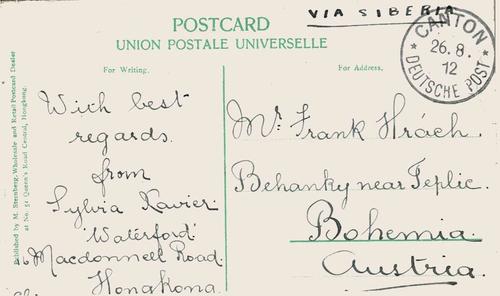 VIA SIBERIA
POSTCARD
UNION POSTALE UNIVERSELLE
CANTON
26.8.
12
* DEUTSCHE POST *
For Writing.
For Address.
Published by M. Sternberg, Wholesale and Retail Postcard Dealer
at No. 51 Queen's Road Central, Hongkong.
With best
regards.
from
Sylvia Xavier.
Waterford
Macdonnell Road.
Hongkong.
Mr. Frank Hrách.
Behanky near Teplic.
Bohemia
Austria.